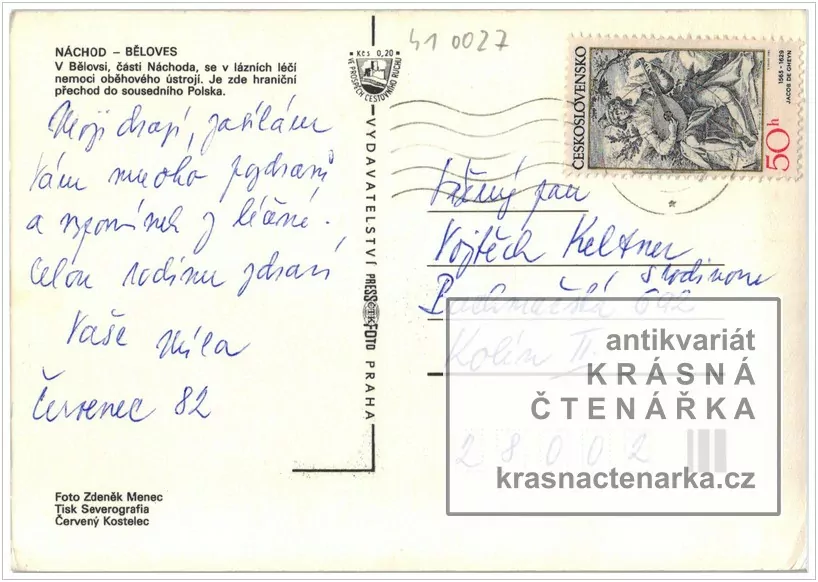 41 0027
NÁCHOD – BĚLOVES
V Bělovsi, části Náchoda, se v lázních léčí
nemoci oběhového ústrojí. Je zde hraniční
přechod do sousedního Polska.
Moji drazí, zasílám
Vám mnoho pozdravů
a vzpomínek z léčení.
Celou rodinu zdraví
Vaše Míla
Červenec 82
Foto Zdeněk Menec
Tisk Severografia
Červený Kostelec
Kčs 0,20
VE PROSPĚCH CESTOVNÍHO RUCHU
VYDAVATELSTVÍ PRESSFOTO PRAHA
ČTK
ČESKOSLOVENSKO
1565 - 1629
JACOB DE GHEYN
50h
Vážený pan
Vojtěch Keltner
s rodinou
692
Kolín II.
28002
antikvariát
KRÁSNÁ
ČTENÁŘKA
krasnactenarka.cz